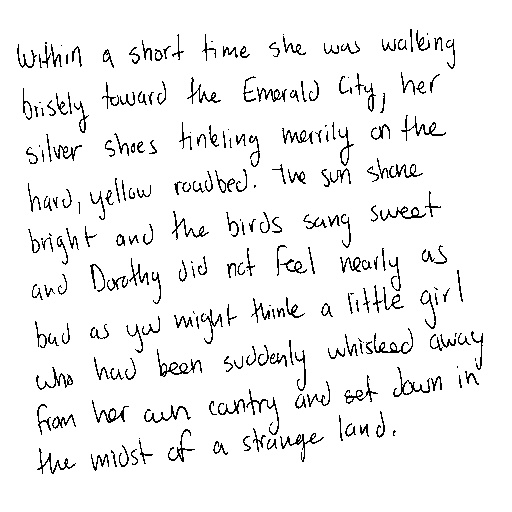 Within a short time she was walking
briskly toward the Emerald City, her
silver shoes tinkling merrily on the
hard, yellow roadbed. The sun shone
bright and the birds sang sweet
and Dorothy did not feel nearly as
bad as you might think a little girl
who had been suddenly whisked away
from her own country and set down in
the midst of a strange land.